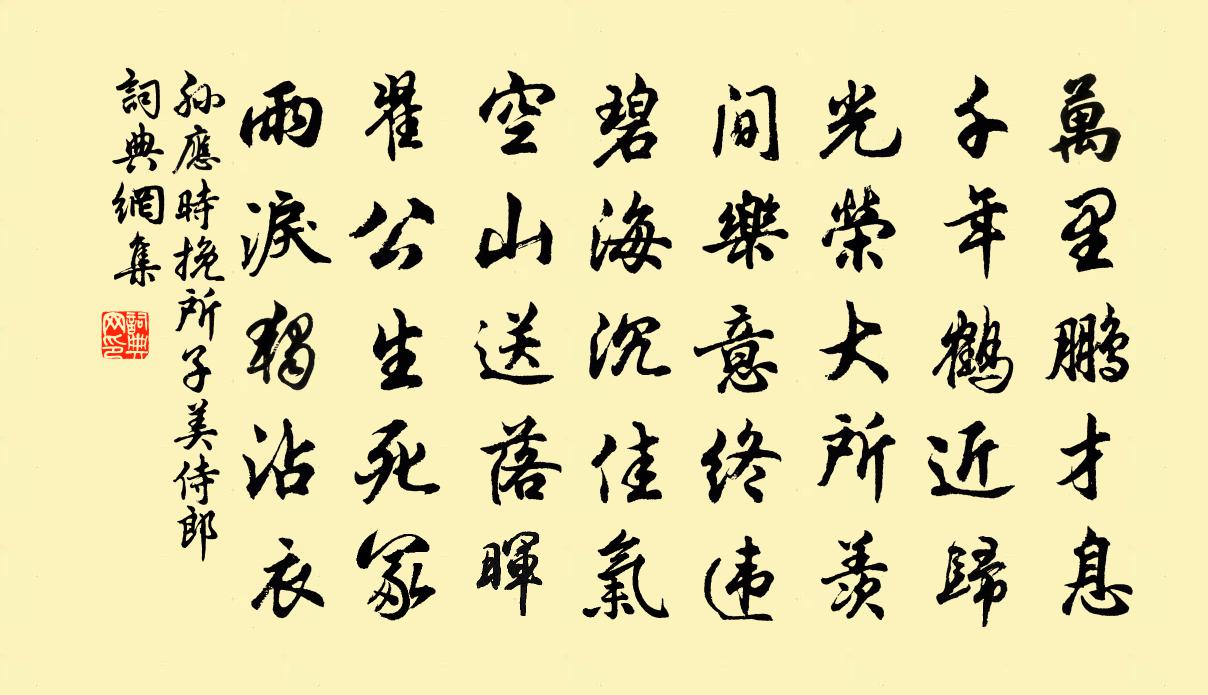 萬里鵬才息
千年鶴近歸
光榮大所羨
間樂意終違
碧海沉佳氣
空山送落暉
翟公生死冢
雨淚獨沾衣
孫應時挽所子美侍郎
詞典網集
詞典网印